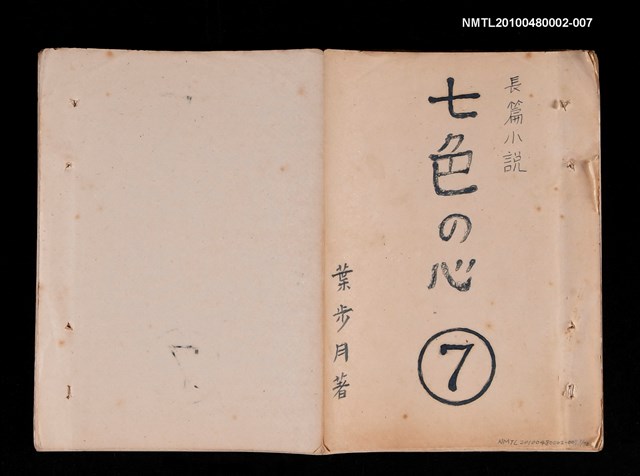 NMTL20100480002-007
長篇小説
七色の心
7
葉步月著
NMTL20100480002-007